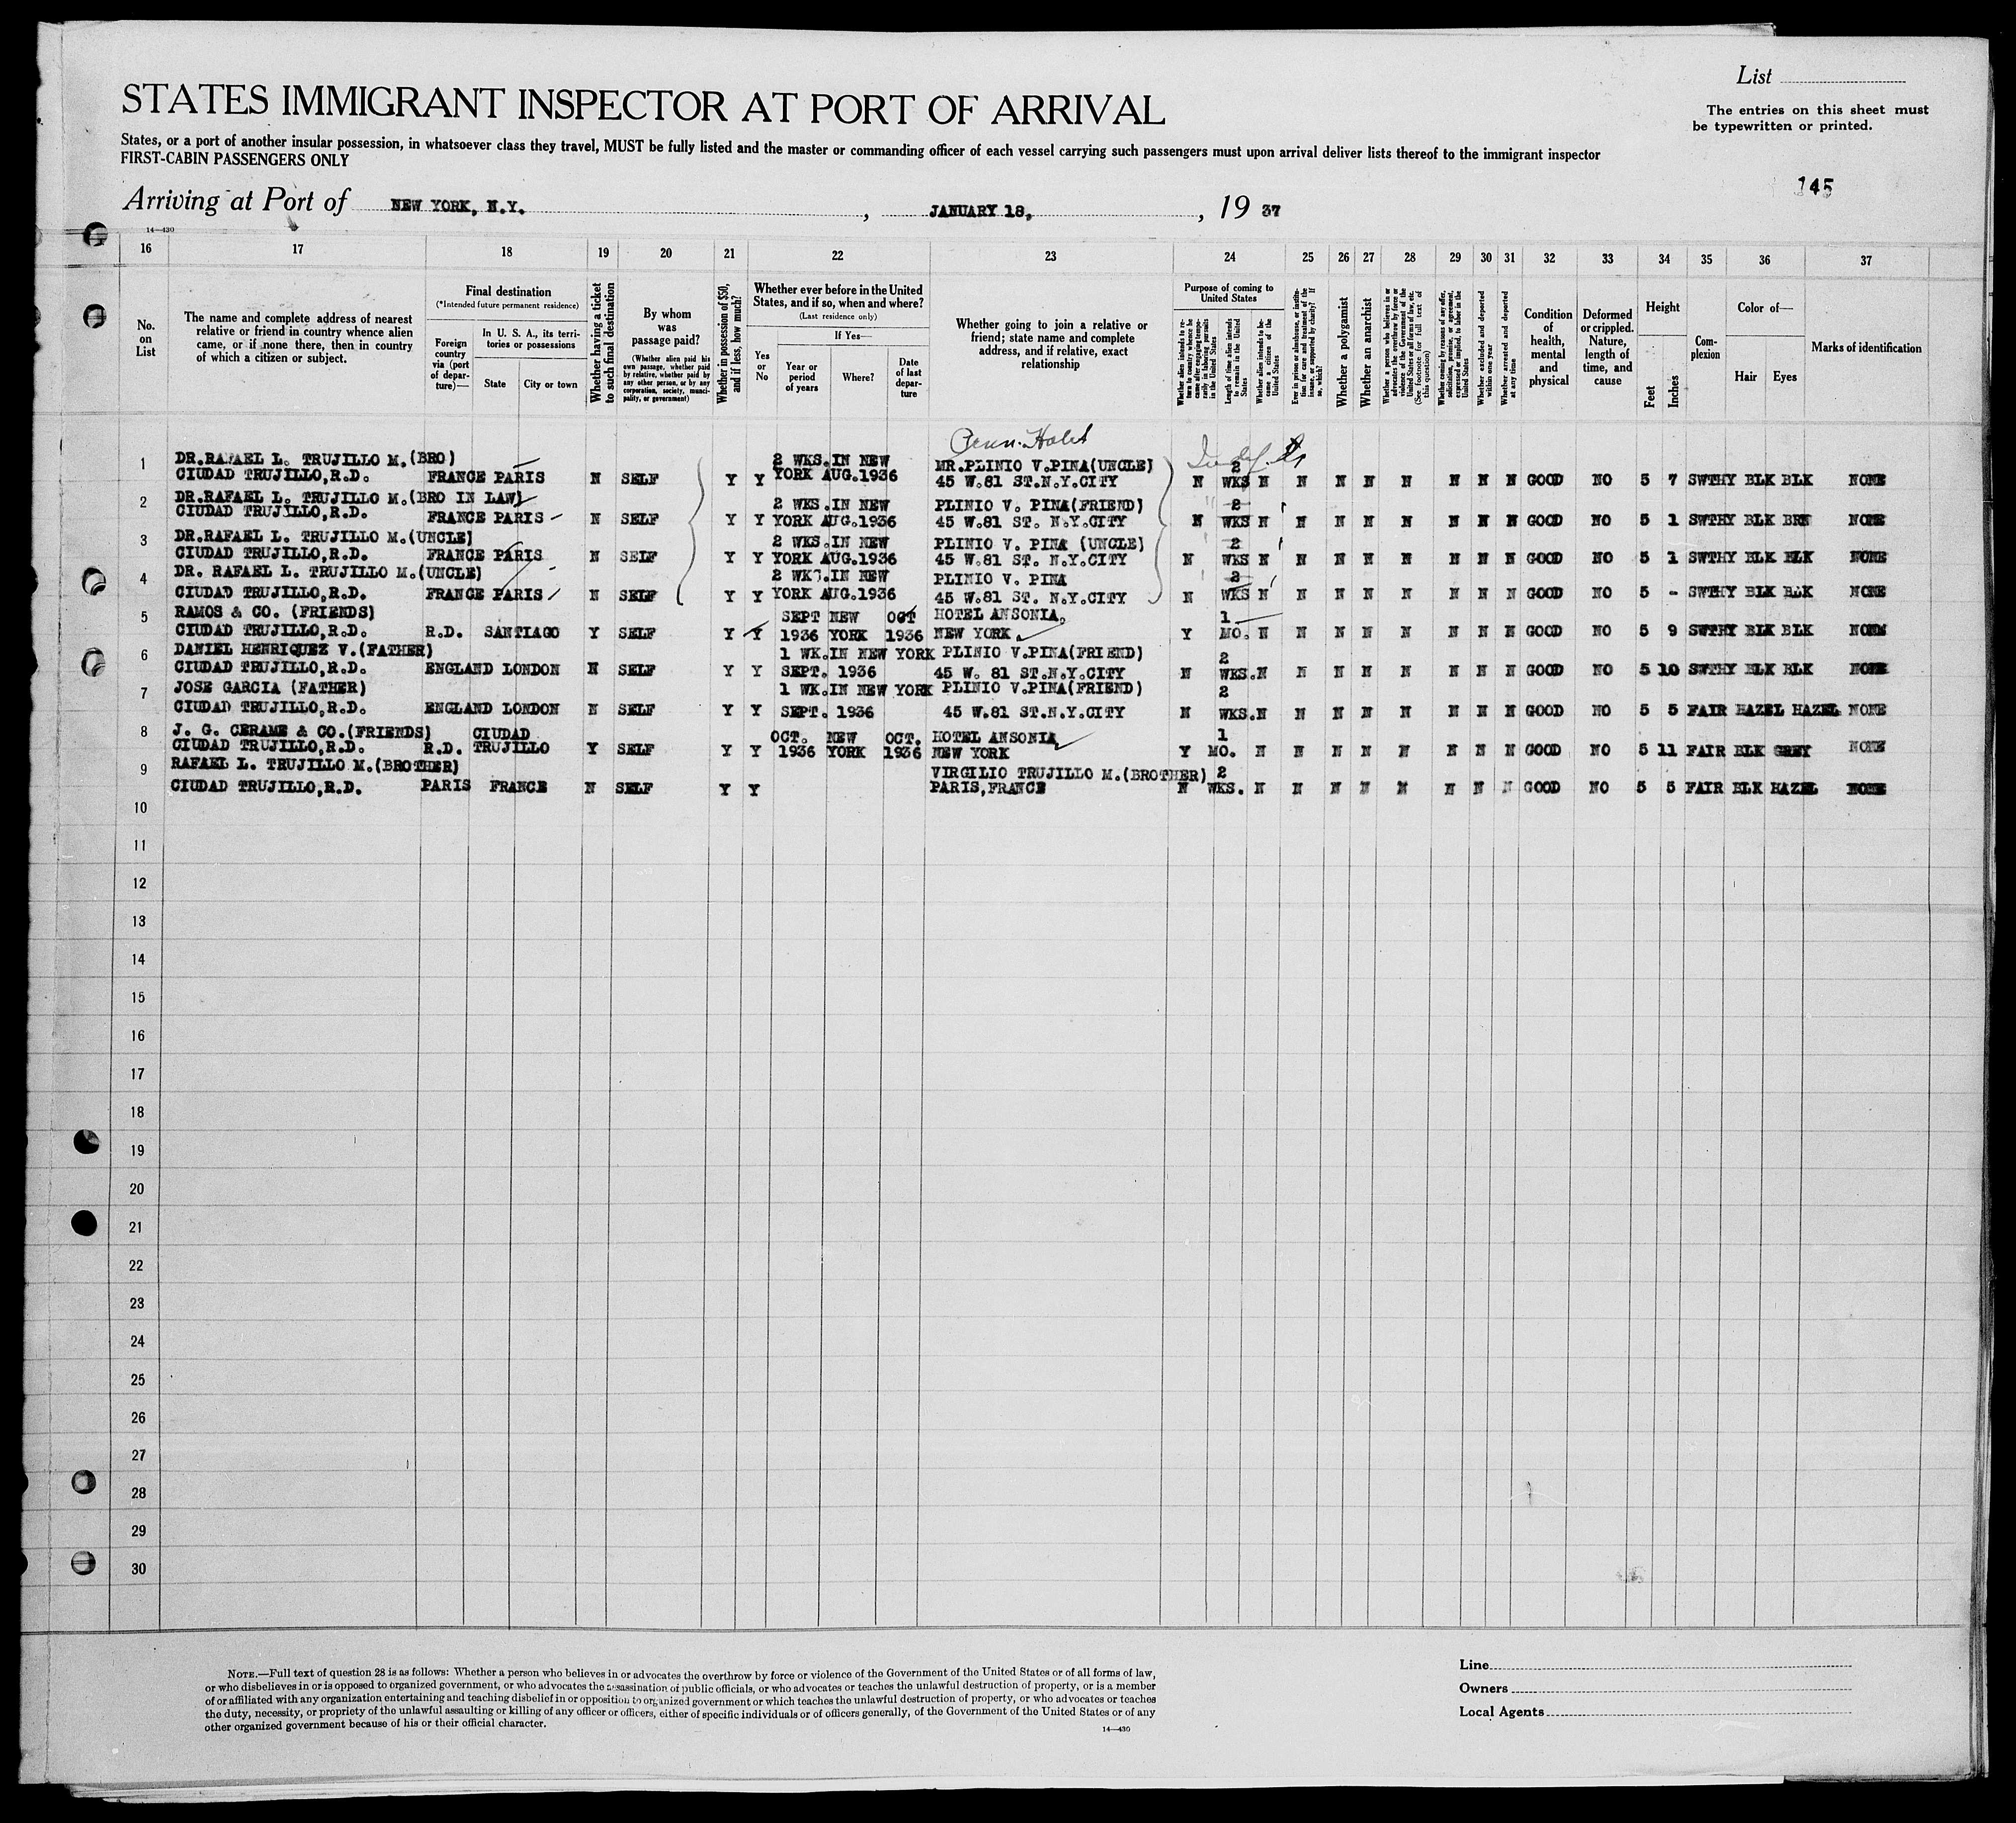 List
The entries on this sheet must
be typewritten or printed.
STATES IMMIGRANT INSPECTOR AT PORT OF ARRIVAL
States, or a port of another insular possession, in whatsoever class they travel, MUST be fully listed and the master or commanding officer of each vessel carrying such passengers must upon arrival deliver lists thereof to the immigrant inspector
FIRST-CABIN PASSENGERS ONLY
145
Arriving at Port of NEW YORK, N.Y. , JANUARY 18, , 19 37
14—430
16 17 18 19 20 21 22 23 24 25 26 27 28 29 30 31 32 33 34 35 36 37
No. on List
The name and complete address of nearest relative or friend in country whence alien came, or if none there, then in country of which a citizen or subject.
Final destination
(*Intended future permanent residence)
Foreign country via (port of departure)—
In U. S. A., its territories or possessions
State
City or town
Whether having a ticket to such final destination
By whom was passage paid?
(Whether alien paid his own passage, whether paid by relative, whether paid by any other person, or by any corporation, society, municipality, or government)
Whether in possession of $50, and if less, how much?
Whether ever before in the United States, and if so, when and where?
(Last residence only)
Yes or No
If Yes—
Year or period of years
Where?
Date of last departure
Whether going to join a relative or friend; state name and complete address, and if relative, exact relationship
Purpose of coming to United States
Whether alien intends to return to country whence he came after engaging temporarily in laboring pursuits in the United States
Length of time alien intends to remain in the United States
Whether alien intends to become a citizen of the United States
Ever in prison or almshouse, or institution for care and treatment of the insane, or supported by charity? If so, which?
Whether a polygamist
Whether an anarchist
Whether a person who believes in or advocates the overthrow by force or violence of the Government of the United States or all forms of law, etc. (See footnote for full text of this question)
Whether coming by reasons of any offer, solicitation, promise, or agreement, expressed or implied, to labor in the United States
Whether excluded and deported within one year
Whether arrested and deported at any time
Condition of health, mental and physical
Deformed or crippled. Nature, length of time, and cause
Height
Feet
Inches
Complexion
Color of—
Hair
Eyes
Marks of identification
1 DR.RAFAEL L. TRUJILLO M.(BRO) 2 WKS.IN NEW MR.PLINIO V.PINA(UNCLE) 2
CIUDAD TRUJILLO,R.D. FRANCE PARIS N SELF Y Y YORK AUG.1936 45 W.81 ST.N.Y.CITY N WKS N N N N N N N N GOOD NO 5 7 SWTHY BLK BLK NONE
2 DR.RAFAEL L. TRUJILLO M.(BRO IN LAW) 2 WKS.IN NEW PLINIO V. PINA(FRIEND) 2
CIUDAD TRUJILLO,R.D. FRANCE PARIS N SELF Y Y YORK AUG.1936 45 W.81 ST. N.Y.CITY N WKS N N N N N N N N GOOD NO 5 1 SWTHY BLK BRN NONE
3 DR.RAFAEL L. TRUJILLO M.(UNCLE) 2 WKS.IN NEW PLINIO V. PINA (UNCLE) 2
CIUDAD TRUJILLO,R.D. FRANCE PARIS N SELF Y Y YORK AUG.1936 45 W.81 ST. N.Y.CITY N WKS N N N N N N N N GOOD NO 5 1 SWTHY BLK BLK NONE
4 DR. RAFAEL L. TRUJILLO M.(UNCLE) 2 WKS.IN NEW PLINIO V. PINA 2
CIUDAD TRUJILLO,R.D. FRANCE PARIS N SELF Y Y YORK AUG.1936 45 W.81 ST. N.Y.CITY N WKS N N N N N N N N GOOD NO 5 - SWTHY BLK BLK NONE
5 RAMOS & CO. (FRIENDS) SEPT NEW OCT HOTEL ANSONIA, 1
CIUDAD TRUJILLO,R.D. R.D. SANTIAGO Y SELF Y Y 1936 YORK 1936 NEW YORK Y MO. N N N N N N N N GOOD NO 5 9 SWTHY BLK BLK NONE
6 DANIEL HENRIQUEZ V.(FATHER) 1 WK.IN NEW YORK PLINIO V.PINA(FRIEND) 2
CIUDAD TRUJILLO,R.D. ENGLAND LONDON N SELF Y Y SEPT. 1936 45 W. 81 ST.N.Y.CITY N WKS.N N N N N N N N GOOD NO 5 10 SWTHY BLK BLK NONE
7 JOSE GARCIA (FATHER) 1 WK.IN NEW YORK PLINIO V.PINA(FRIEND) 2
CIUDAD TRUJILLO,R.D. ENGLAND LONDON N SELF Y Y SEPT. 1936 45 W.81 ST.N.Y.CITY N WKS.N N N N N N N N GOOD NO 5 5 FAIR HAZEL HAZEL NONE
8 J. G. CERAME & CO.(FRIENDS) CIUDAD OCT. NEW OCT. HOTEL ANSONIA 1
CIUDAD TRUJILLO,R.D. R.D. TRUJILLO Y SELF Y Y 1936 YORK 1936 NEW YORK Y MO. N N N N N N N N GOOD NO 5 11 FAIR BLK GREY NONE
9 RAFAEL L. TRUJILLO M.(BROTHER) VIRGILIO TRUJILLO M.(BROTHER) 2
CIUDAD TRUJILLO,R.D. PARIS FRANCE N SELF Y Y PARIS,FRANCE N WKS. N N N N N N N N GOOD NO 5 5 FAIR BLK HAZEL NONE
10
11
12
13
14
15
16
17
18
19
20
21
22
23
24
25
26
27
28
29
30
NOTE.—Full text of question 28 is as follows: Whether a person who believes in or advocates the overthrow by force or violence of the Government of the United States or of all forms of law,
or who disbelieves in or is opposed to organized government, or who advocates the assassination of public officials, or who advocates or teaches the unlawful destruction of property, or is a member
of or affiliated with any organization entertaining and teaching disbelief in or opposition to organized government or which teaches the unlawful destruction of property, or who advocates or teaches
the duty, necessity, or propriety of the unlawful assaulting or killing of any officer or officers, either of specific individuals or of officers generally, of the Government of the United States or of any
other organized government because of his or their official character.
14—430
Line
Owners
Local Agents